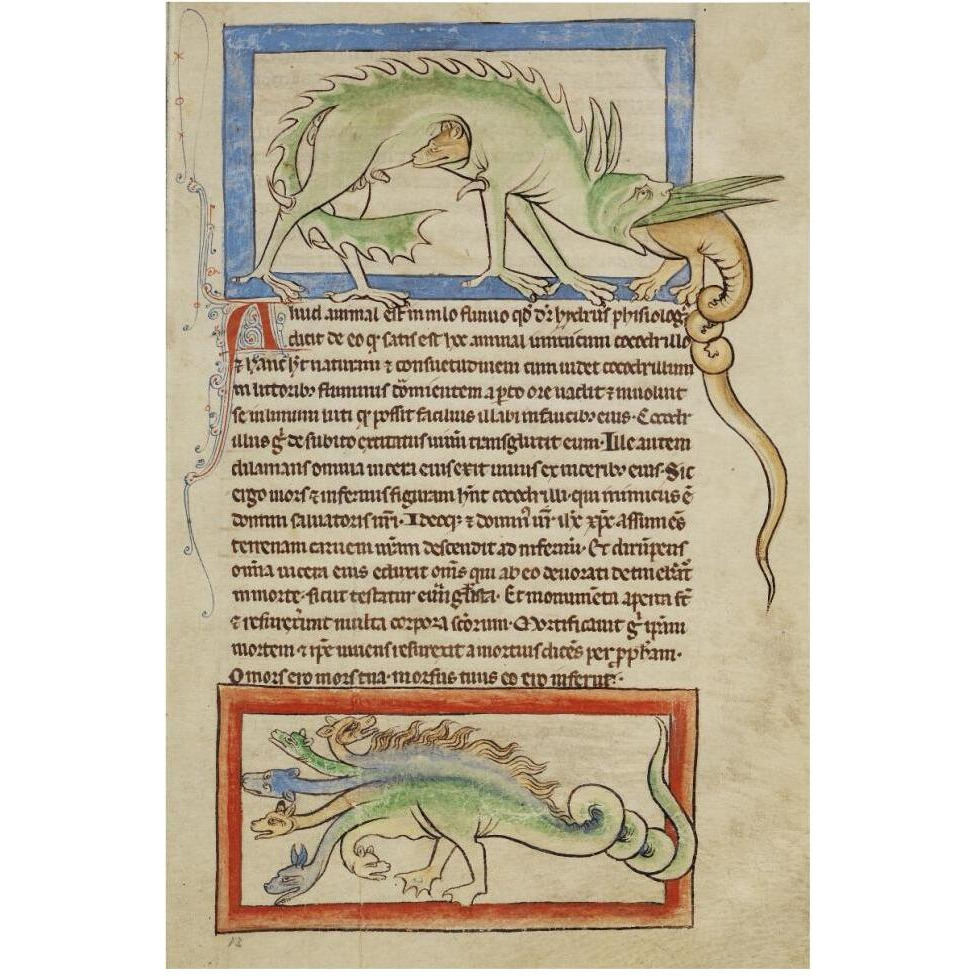 Aliud animal est in nilo fluuio qd̄ dr̄ hydrus phisiolog᷒
dicit de eo qͥ satis est hoc animal inimicum cocodrillo
⁊ hanc hr̄t naturam ⁊ consuetudinem cum uidet cocodrillum
in littorib᷒ fluminis dormientem aꝑto ore uadit ⁊ inuoluit
se in limum luti qͦ possit facilius illabi in faucib᷒ eius. Cocodr
illus gͦ de subito excitatus uiuū transglutit eum. Ille autem
dilanians omnia uicera eius exit uiuus ex uicerib᷒ eius. Sic
ergo mors ⁊ infernus figuram hn̄t cocodrilli. qui inimicus ē
domini saluatoris nr̄i. Ideoqꝫ ⁊ domin᷒ nr̄ ih̄c xp̄c assumēs
terrenam carnem nr̄am descendit ad infernū. Et dirūpens
om̄ia uicera eius eduxit om̄s qui ab eo deuorati detinebāt᷑
in morte. sicut testatur euu̅gl̅ista. Et monumēta aperta st̄
⁊ resurexerunt multa corpora sc̄orum. Mortificauit gͦ ipsam
mortem ⁊ ip̄e uiuens resurexit a mortuis dicēs per ꝓph̅am.
O mors ero mors tua. morsus tuus ero inferne.
13